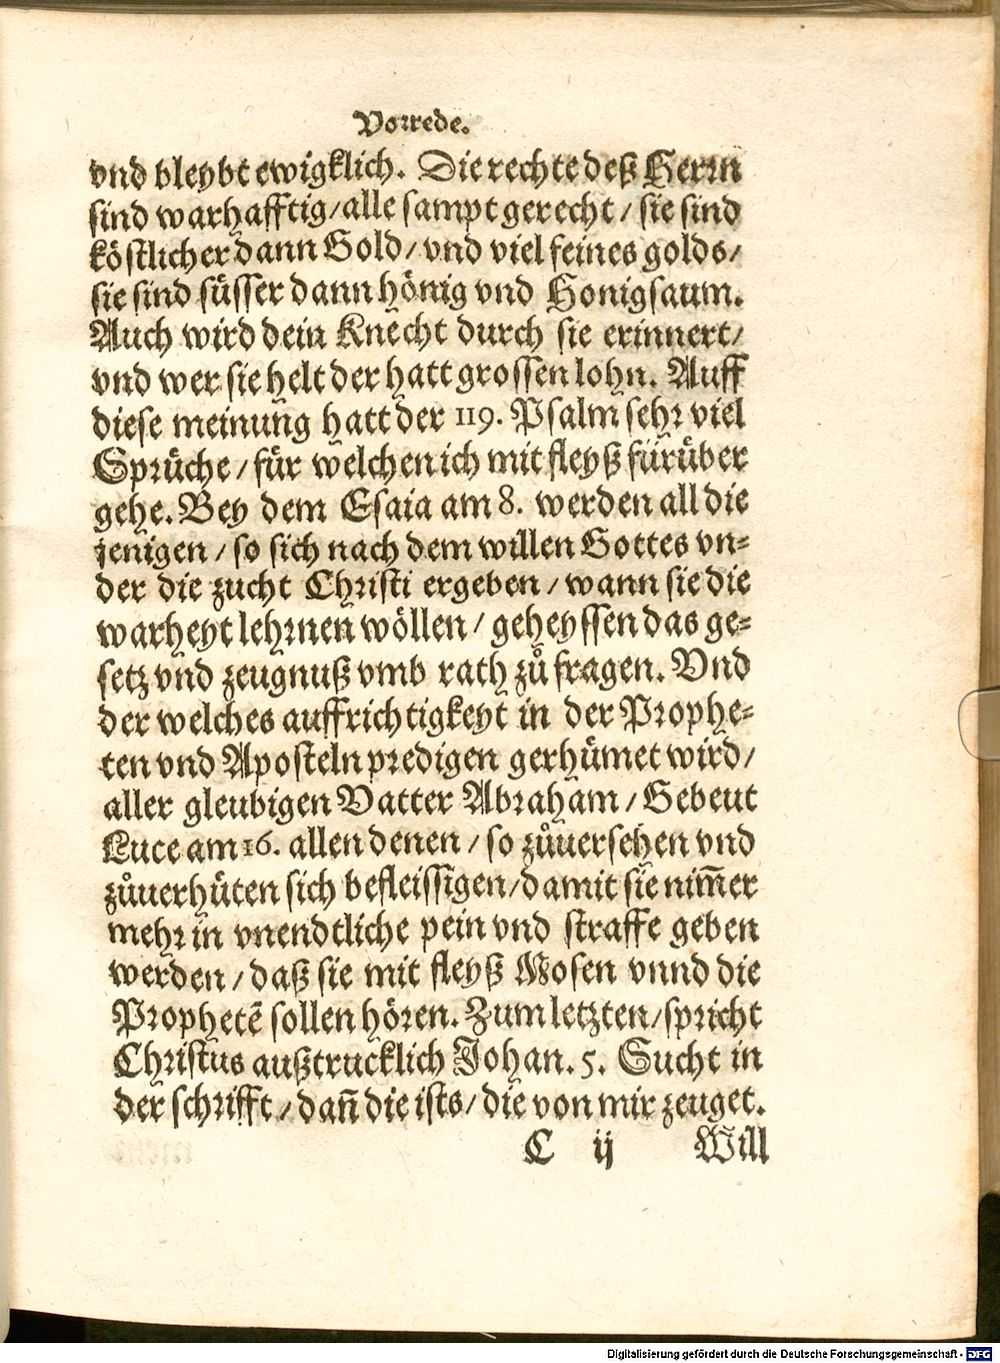 Vorrede.
vnd bleybt ewigklich. Die rechte deß Herrn
sind warhafftig/alle sampt gerecht/ sie sind
köstlicher dann Gold/ vnd viel feines golds/
sie sind süsser dann hönig vnd Honigsaum.
Auch wird dein Knecht durch sie erinnert/
vnd wer sie helt der hatt grossen lohn. Auff
diese meinung hatt der 119. Psalm sehr viel
Sprüche/ für welchen ich mit fleyß fürüber
gehe. Bey dem Esaia am 8. werden all die
jenigen/ so sich nach dem willen Gottes vn-
der die zucht Christi ergeben/ wann sie die
warheyt lehrnen wöllen/ geheyssen das ge-
setz vnd zeugnuß vmb rath zů fragen. Vnd
der welches auffrichtigkeyt in der Prophe-
ten vnd Aposteln predigen gerhümet wird/
aller gleubigen Vatter Abraham/ Gebeut
Luce am 16. allen denen/ so zůuersehen vnd
zůuerhüten sich befleissigen/damit sie nim̃er
mehr in vnendtliche pein vnd straffe geben
werden/ daß sie mit fleyß Mosen vnnd die
Prophetẽ sollen hören. Zum letzten/spricht
Christus außtrucklich Johan. 5. Sucht in
der schrifft/ dañ die ists/ die von mir zeuget.
C ij Will
Digitalisierung gefördert durch die Deutsche Forschungsgemeinschaft - DFG